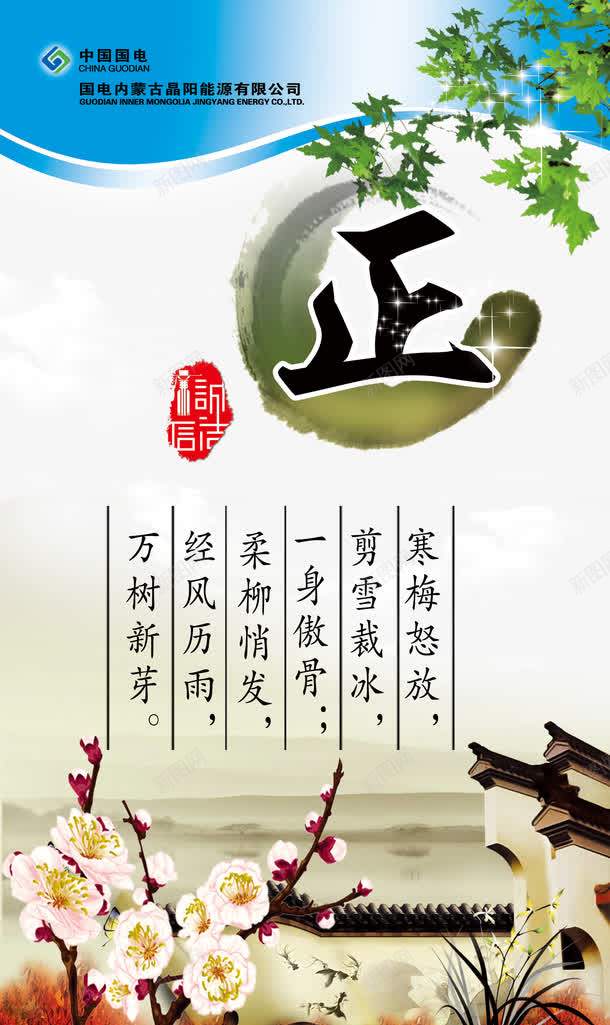 中国国电
CHINA GUODIAN
国电内蒙古晶阳能源有限公司
GUODIAN INNER MONGOLIA JINGYANG ENERGY CO.,LTD.
正
誠信
寒梅怒放，
剪雪裁冰，
一身傲骨；
柔柳悄发，
经风历雨，
万树新芽。